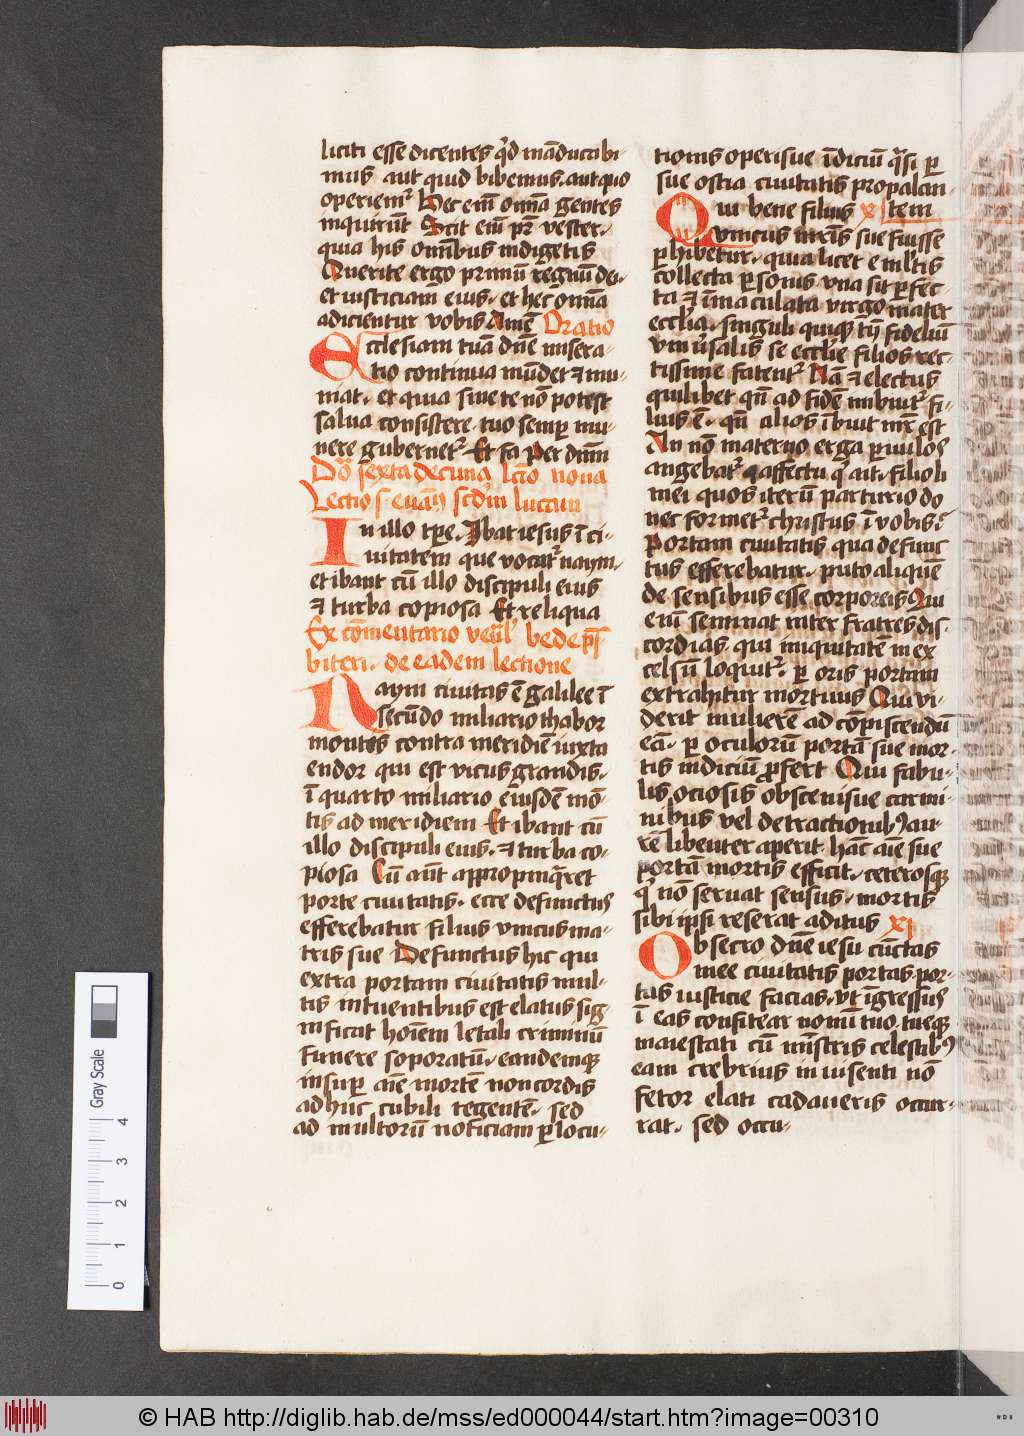 liciti esse dicentes qd māducabi-
mus aut quid bibemus. aut quo
operiemr Hec em̄ omīa gentes
inquirūt Scit em̄ pr̄ vester.
quia his omībus indigetis
Querite ergo primū regnū dei.
et iusticiam eius. et hec omīa
adicientur vobis Amē Oratio
Ecclesiam tuā dn̄e misera-
tio continua mūdet ⁊ mu-
niat. et quia sine te nō potest
salua consistere. tuo semper mu-
nere gubernetr Et fa Per dnm̄
Do sexta decima lctio nona
Lectio s. euāg scdm lucam
In illo tpe. Ibat iesus ī ci-
uitatem que vocatr naym.
et ibant cū illo discipuli eius
⁊ turba copiosa Et reliqua
Ex cōmentario venl bede prs
biteri. de eadem lectione
Naym ciuitas ē galilee ī
secūdo miliario thabor
montis contra meridiē iuxta
endor qui est vicus grandis.
ī quarto miliario eiusdē mō-
tis ad meridiem Et ibant cū
illo discipuli eius. ⁊ turba co-
piosa Cū aūt appropinqret
porte ciuitatis. ecce defunctus
efferebatur filius vnicus ma-
tris sue Defunctus hic qui
extra portam ciuitatis mul-
tis intuentibus est elatus sig
nificat hoīem letali criminū
funere soporatū. eandemque
insuper aīe mortē non cordis
adhuc cubili tegentē. sed
ad multorū noticiam per locu-
tionis operisue īdiciū qsi per
sue ostia ciuitatis propalan-
Qui bene filius x Item
vnicus mr̄is sue fuisse
perhibetur. quia licet e mltis
collecta personis vna sit perfec
ta ⁊ īmaculata virgo mater
ecclia. singuli quique tn̄ fideliū
vniuersalis se ecclie filios rec
tissime fatentr Nā ⁊ electus
quilibet qn̄ ad fidē imbuitr fi-
lius ē. qn̄ alios ībuit mr̄ est
An nō materno erga paruulos
angebatr affectu qui ait. filioli
mei quos iterū parturio do
nec formetr christus ī vobis.
Portam ciuitatis qua defunc
tus efferebatur. puto aliquē
de sensibus esse corporeis Qui
eim seminat inter fratres dis
cordias. qui iniquitatē in ex
celsū loquitr. per oris portam
extrahitur mortuus Qui vi-
derit mulierē ad cōpiscendū
eā. per oculorū portā sue mor-
tis indiciū profert Qui fabu-
lis ociosis obscenisue carmi-
nibus vel detractionibus au-
rē libenter aperit. hāc aīe sue
portā mortis efficit. ceterosque
qui nō seruat sensus. mortis
sibi ipsi reserat aditus xi
Obsecro dn̄e iesu cūctas
mee ciuitatis portas. por-
tas iusticie facias. vt īgressus
ī eas confitear nomī tuo. tueque
maiestati cū mīstris celestibus
eam crebrius inuisenti nō
fetor elati cadaueris occur-
rat. sed occu-
Gray Scale
4
3
2
1
0
© HAB http://diglib.hab.de/mss/ed000044/start.htm?image=00310